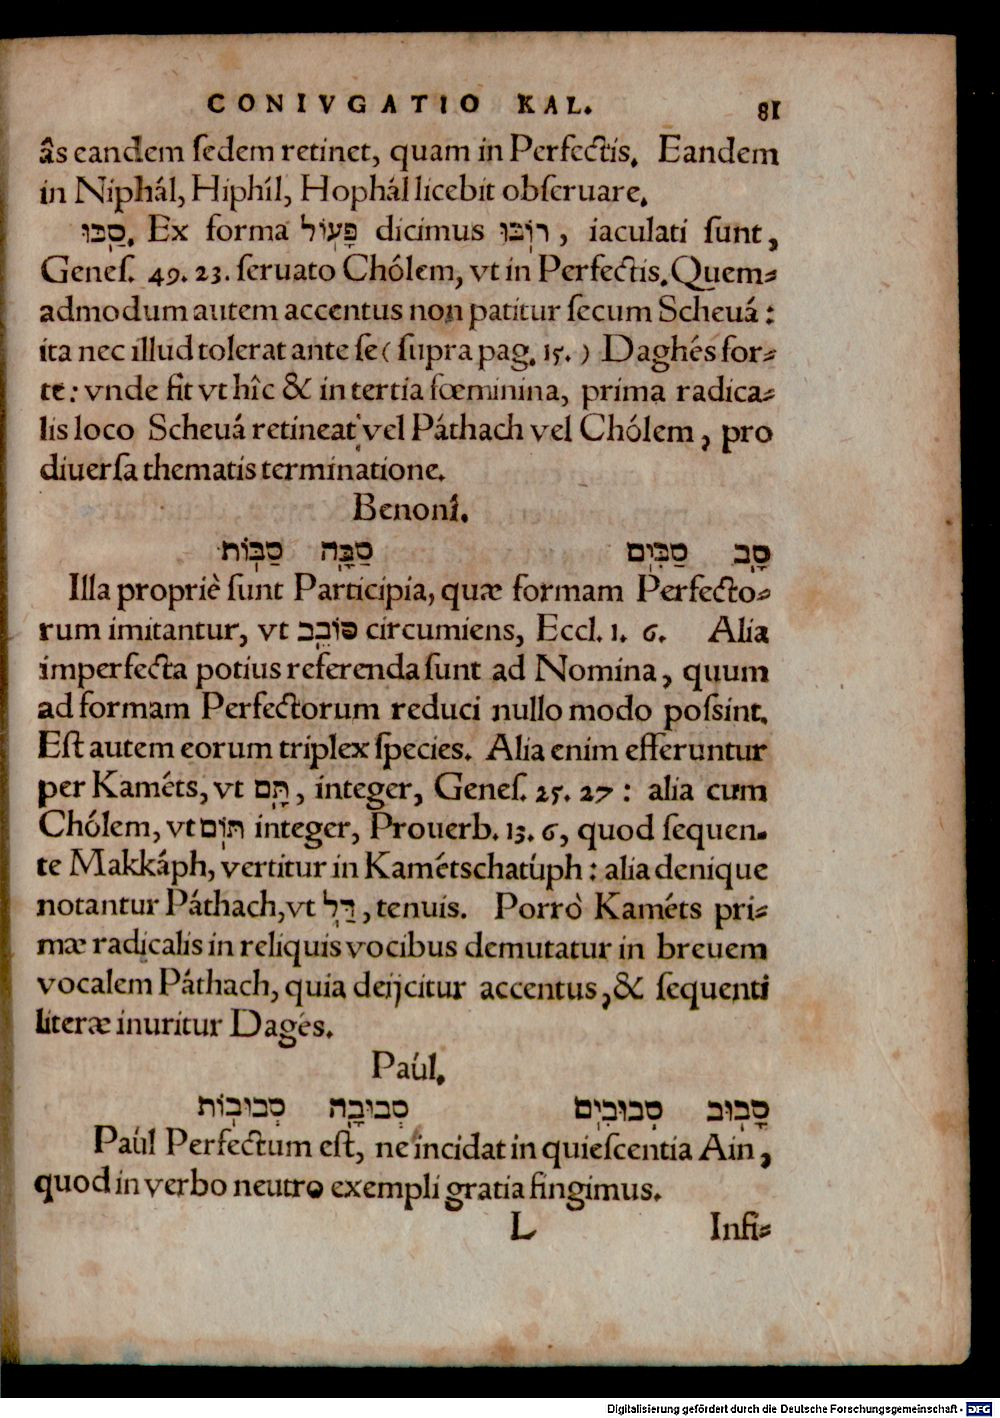 CONIVGATIO KAL. 81
âs eandem ſedem retinet, quam in Perfectis. Eandem
in Niphál, Hiphíl, Hophál licebit obſeruare.
סַבּוּ. Ex forma פָּעוֹל dicimus רוֹבּוּ, iaculati ſunt,
Geneſ. 49. 23. ſeruato Chólem, vt in Perfectis. Quem-
admodum autem accentus non patitur ſecum Scheuá:
ita nec illud tolerat ante ſe (ſupra pag. 15.) Daghés for-
te: vnde fit vt hîc & in tertia fœminina, prima radica-
lis loco Scheuá retineat vel Páthach vel Chólem, pro
diuerſa thematis terminatione.
Benoní.
סָב סַבִּים סַבָּה סַבּוֹת
Illa propriè ſunt Participia, quæ formam Perfecto-
rum imitantur, vt סוֹבֵב circumiens, Eccl. 1. 6. Alia
imperfecta potius referenda ſunt ad Nomina, quum
ad formam Perfectorum reduci nullo modo poſsint.
Eſt autem eorum triplex ſpecies. Alia enim efferuntur
per Kaméts, vt תָּם, integer, Geneſ. 25. 27: alia cum
Chólem, vt תּוֹם integer, Prouerb. 13. 6, quod ſequen-
te Makkáph, vertitur in Kamétschatúph: alia denique
notantur Páthach, vt דַּל, tenuis. Porrò Kaméts pri-
mæ radicalis in reliquis vocibus demutatur in breuem
vocalem Páthach, quia deijcitur accentus, & ſequenti
literæ inuritur Dagés.
Paúl.
סָבוּב סְבוּבִים סְבוּבָה סְבוּבוֹת
Paúl Perfectum eſt, ne incidat in quieſcentia Ain,
quod in verbo neutro exempli gratia fingimus.
L Infi-
Digitalisierung gefördert durch die Deutsche Forschungsgemeinschaft - DFG